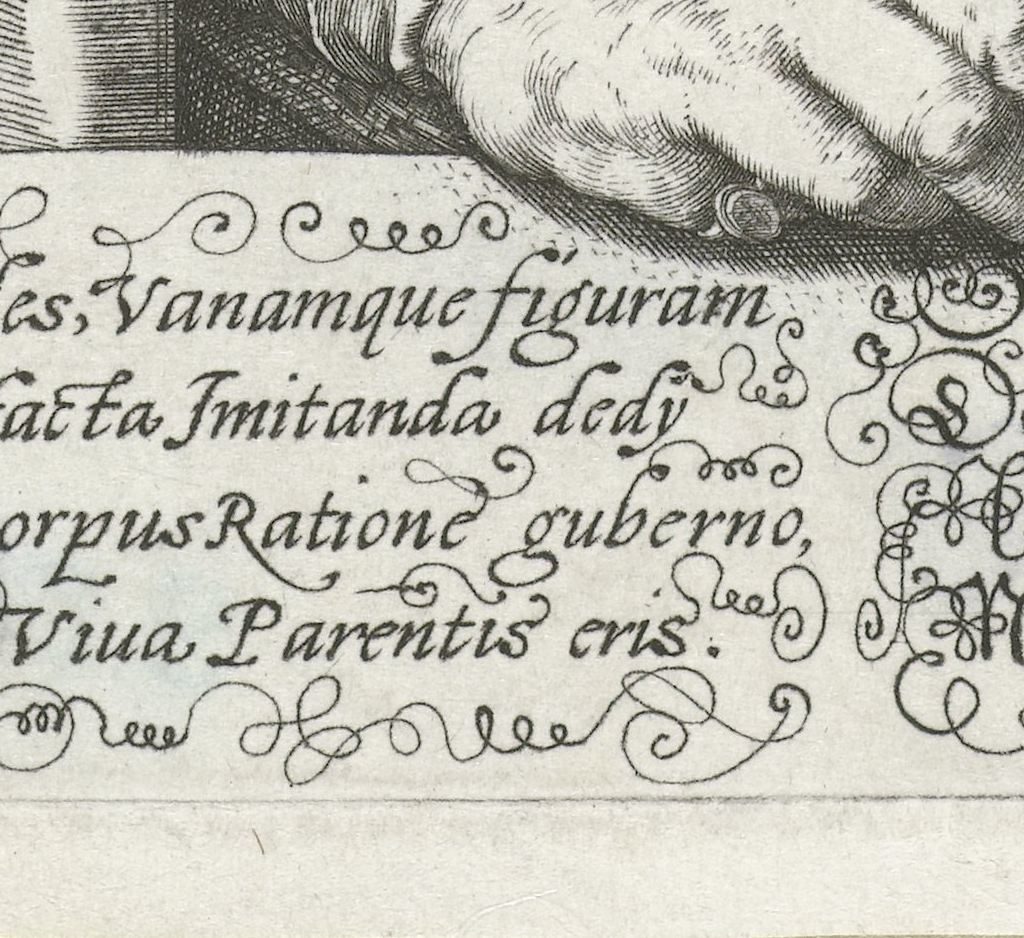 es, Vanamque figuram
acta Jmitanda dedy
orpus Ratione guberno,
Viua Parentis eris.